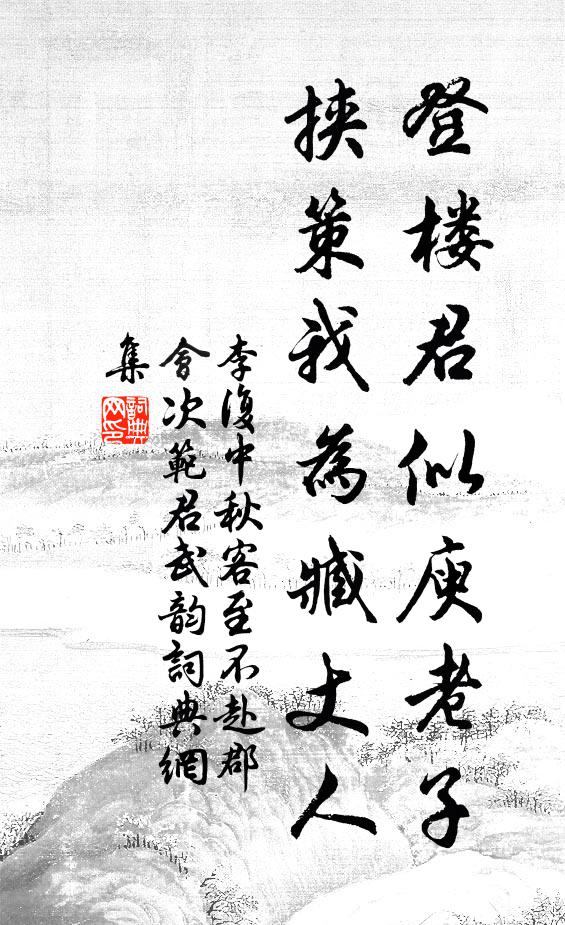 登楼君似庾老子
挟策我為臧丈人
李復中秋客至不赴郡
會次範君武韵詞典網
集
詞典
网印